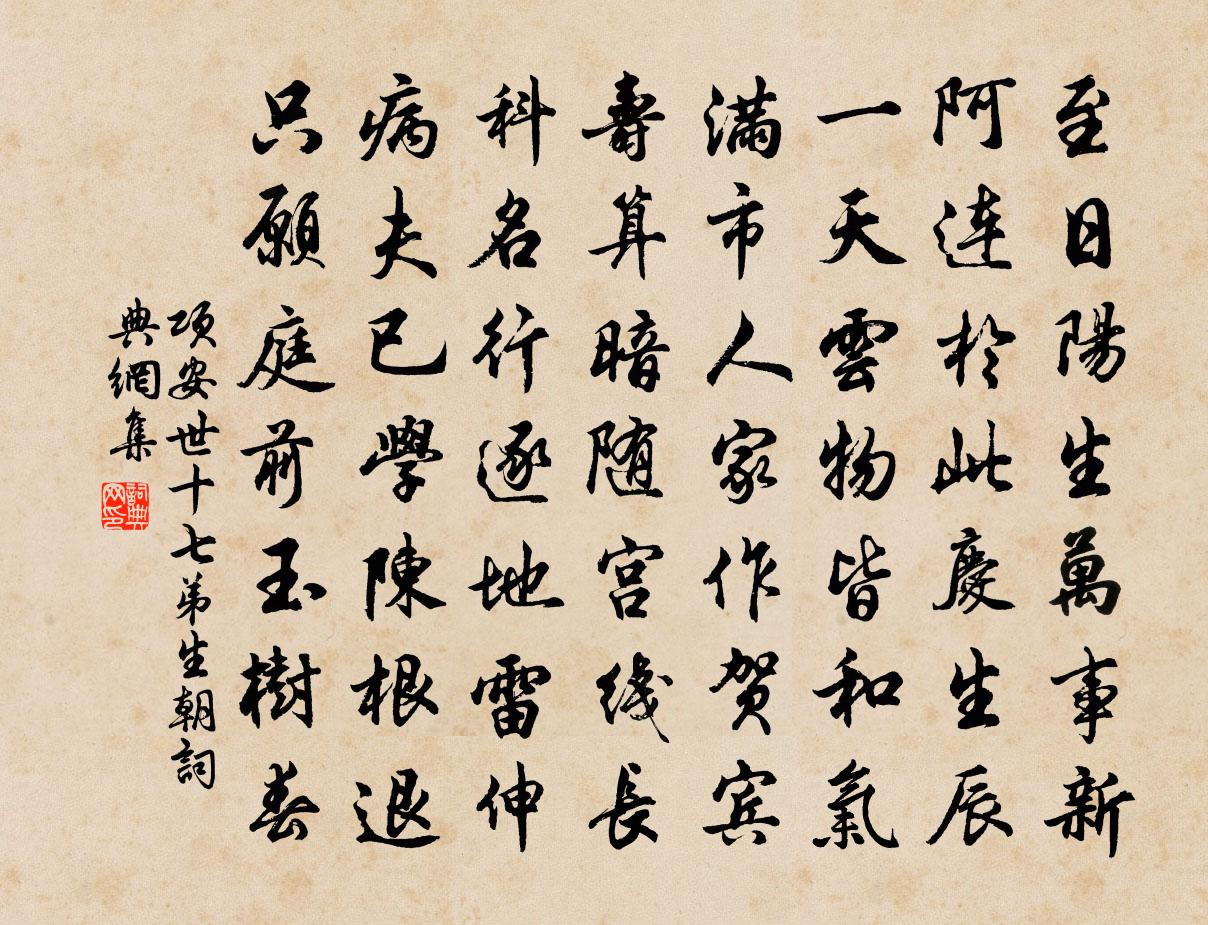 至日陽生萬事新
阿連於此慶生辰
一天雲物皆和氣
滿市人家作贺宾
壽算暗随宫线長
科名行逐地雷伸
病夫已學陳根退
只願庭前玉樹春
項安世十七弟生朝詞
典網集
詞典
网印